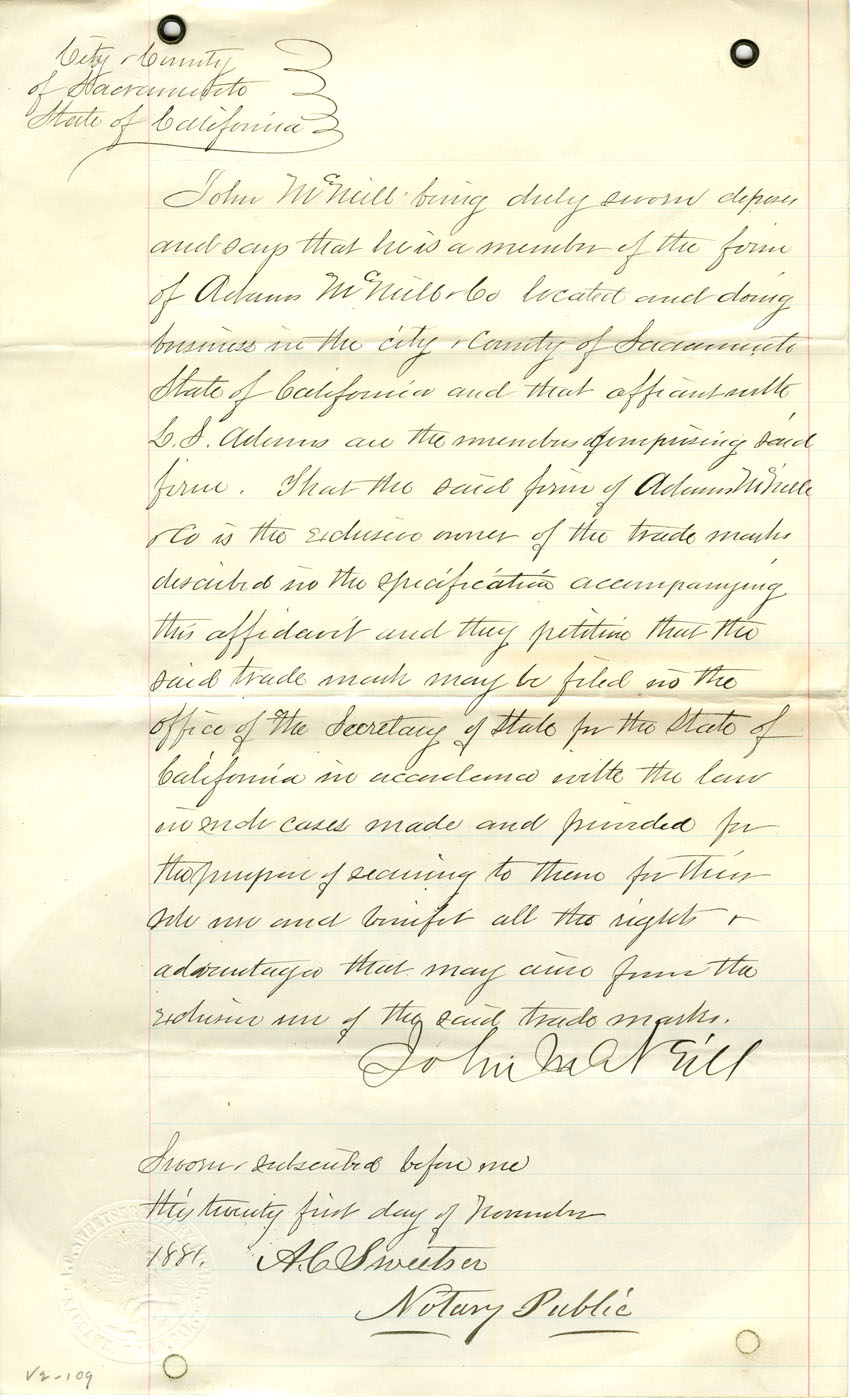 City & County
of Sacramento
State of California
John McNeill being duly sworn deposes
and says that he is a member of the firm
of Adams McNeill & Co located and doing
business in the city & County of Sacramento
State of California and that affiant with
Adams are the members composing said
firm. That the said firm of Adams McNeill
& Co is the exclusive owner of the trade marks
described in the specification accompanying
this affidavit and they petition that the
said trade mark may be filed in the
office of the Secretary of State for the State of
California in accordance with the law
in such cases made and provided for
the purpose of securing to them for their
sole use and benefit all the rights &
advantages that may arise from the
exclusive use of the said trade marks.
John McNeill
Sworn & subscribed before me
this twenty first day of November
1881. A.C. Sweetser
Notary Public
V2-109